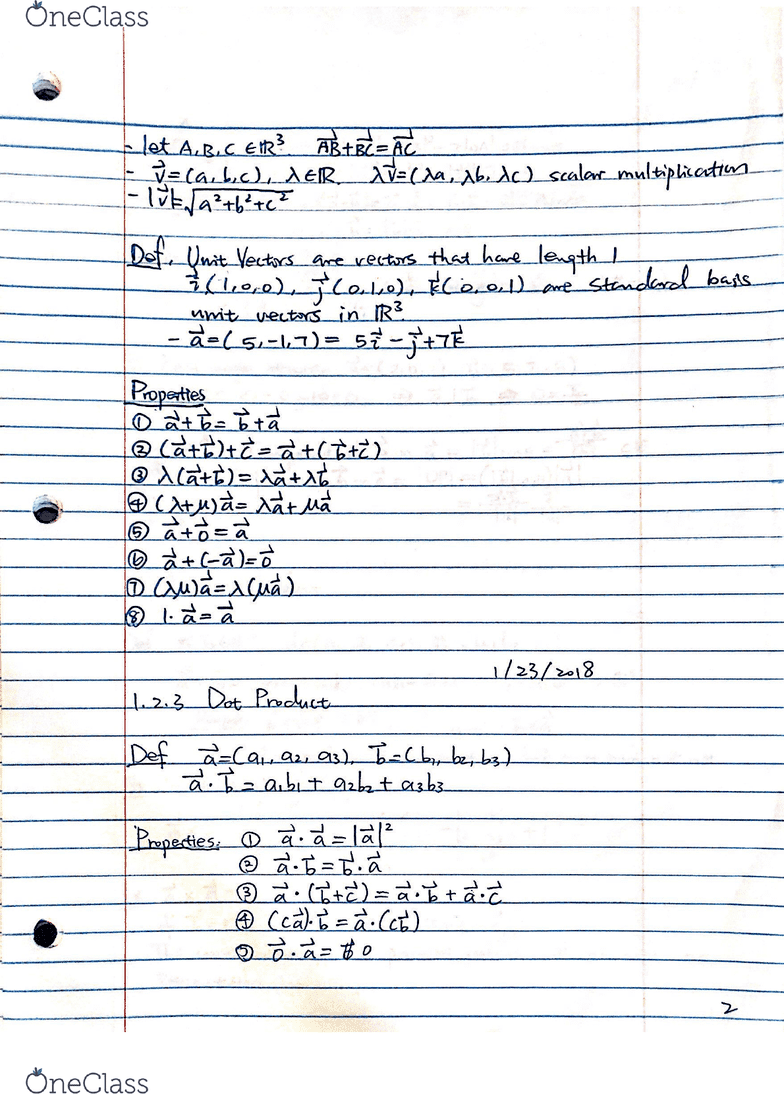 OneClass
- let A, B, C ∈ ℝ³. A⃗B⃗+B⃗C⃗=A⃗C⃗
- v⃗=(a,b,c), λ∈ℝ. λv⃗=(λa, λb, λc) scalar multiplication
- |v⃗|=√a²+b²+c²
Def. Unit Vectors are vectors that have length 1
i⃗(1,0,0), j⃗(0,1,0), k⃗(0,0,1) are standard basis
unit vectors in ℝ³.
- a⃗=(5,-1,7)= 5i⃗-j⃗+7k⃗
Properties
① a⃗+b⃗=b⃗+a⃗
② (a⃗+b⃗)+c⃗=a⃗+(b⃗+c⃗)
③ λ(a⃗+b⃗)=λa⃗+λb⃗
④ (λ+μ)a⃗=λa⃗+μa⃗
⑤ a⃗+0⃗=a⃗
⑥ a⃗+(-a⃗)=0⃗
⑦ (λμ)a⃗=λ(μa⃗)
⑧ 1·a⃗=a⃗
1/23/2018
1.2.3 Dot Product
Def a⃗=(a₁, a₂, a₃), b⃗=(b₁, b₂, b₃)
a⃗·b⃗=a₁b₁+a₂b₂+a₃b₃
Properties: ① a⃗·a⃗=|a⃗|²
② a⃗·b⃗=b⃗·a⃗
③ a⃗·(b⃗+c⃗)=a⃗·b⃗+a⃗·c⃗
④ (ca⃗)·b⃗=a⃗·(cb⃗)
⑤ 0⃗·a⃗= 0
2
OneClass